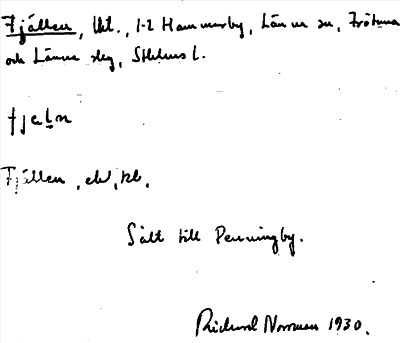 Fjällen, Utl., 1-2 Hammarby, Länna sn, Frötuna
och Länna skg, Sthlms l.
fjeln
Fjällen
Sålt till Penningby.
Richard Norrman 1930.